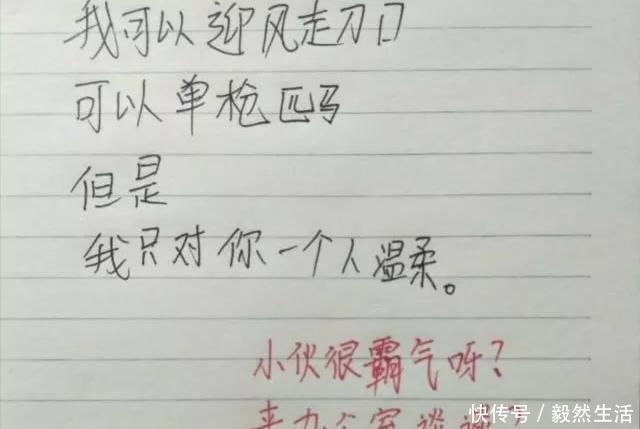 我可以迎风走刀口
可以单枪匹马
但是
我只对你一个人温柔。
小伙很霸气呀？
来办公室谈谈
快传号／毅然生活